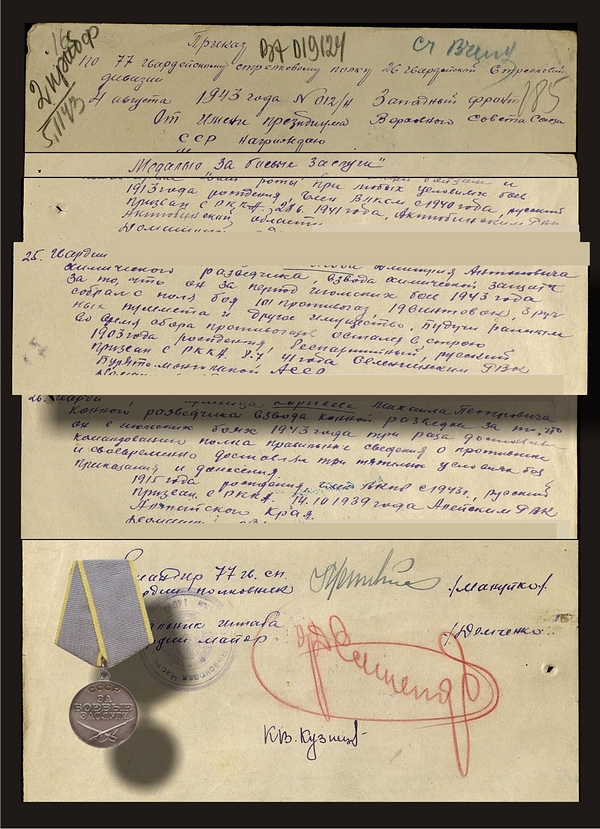 Приказ ВА 019124
по 77 гвардейскому стрелковому полку 26 гвардейской стрелковой
дивизии
4 августа 1943 года №012/н Западный фронт
185
От имени президиума Верховного Совета Союза
ССР награждаю
Медалью За боевые заслуги"
роты при любых условиях боя
1913 года рождения, член ВЛКСМ с 1940 года, русский
Призван в РККА 1941 года, Актюбинским ГВК
Актюбинской области
25. Гвардии
Дмитрия Антоновича
химического разведчика, взвода химической защиты
за то, что он за период июльских боев 1943 года
собрал с поля боя 101 противогаз, 19 винтовок, 3 руч
ных пулемета и другое имущество, будучи раненым
во время сбора противогазов остался в строю
1903 года рождения, беспартийный, русский
Призван в РККА 41 года Селенгинским РВК
Бурято-Монгольской АССР
26. Гвардии Михаила Петровича
конного разведчика взвода конной разведки за то, что
он в июльских боях 1943 года три раза доставлял
командованию полка правильные сведения о противнике
и своевременно доставлял при тяжелых условиях боя
приказания и донесения.
1915 года рождения, член ВКПб с 1943г., русский
Призван в РККА 14.10.1939 года Алейским РВК
Алтайского края.
Командир 77 гв. сп.
гвардии полковник /Мануйло/
Начальник штаба
гвардии майор. /Демченко/
КВ. Кузнецов
СССР
ЗА
БОЕВЫЕ
ЗАСЛУГИ